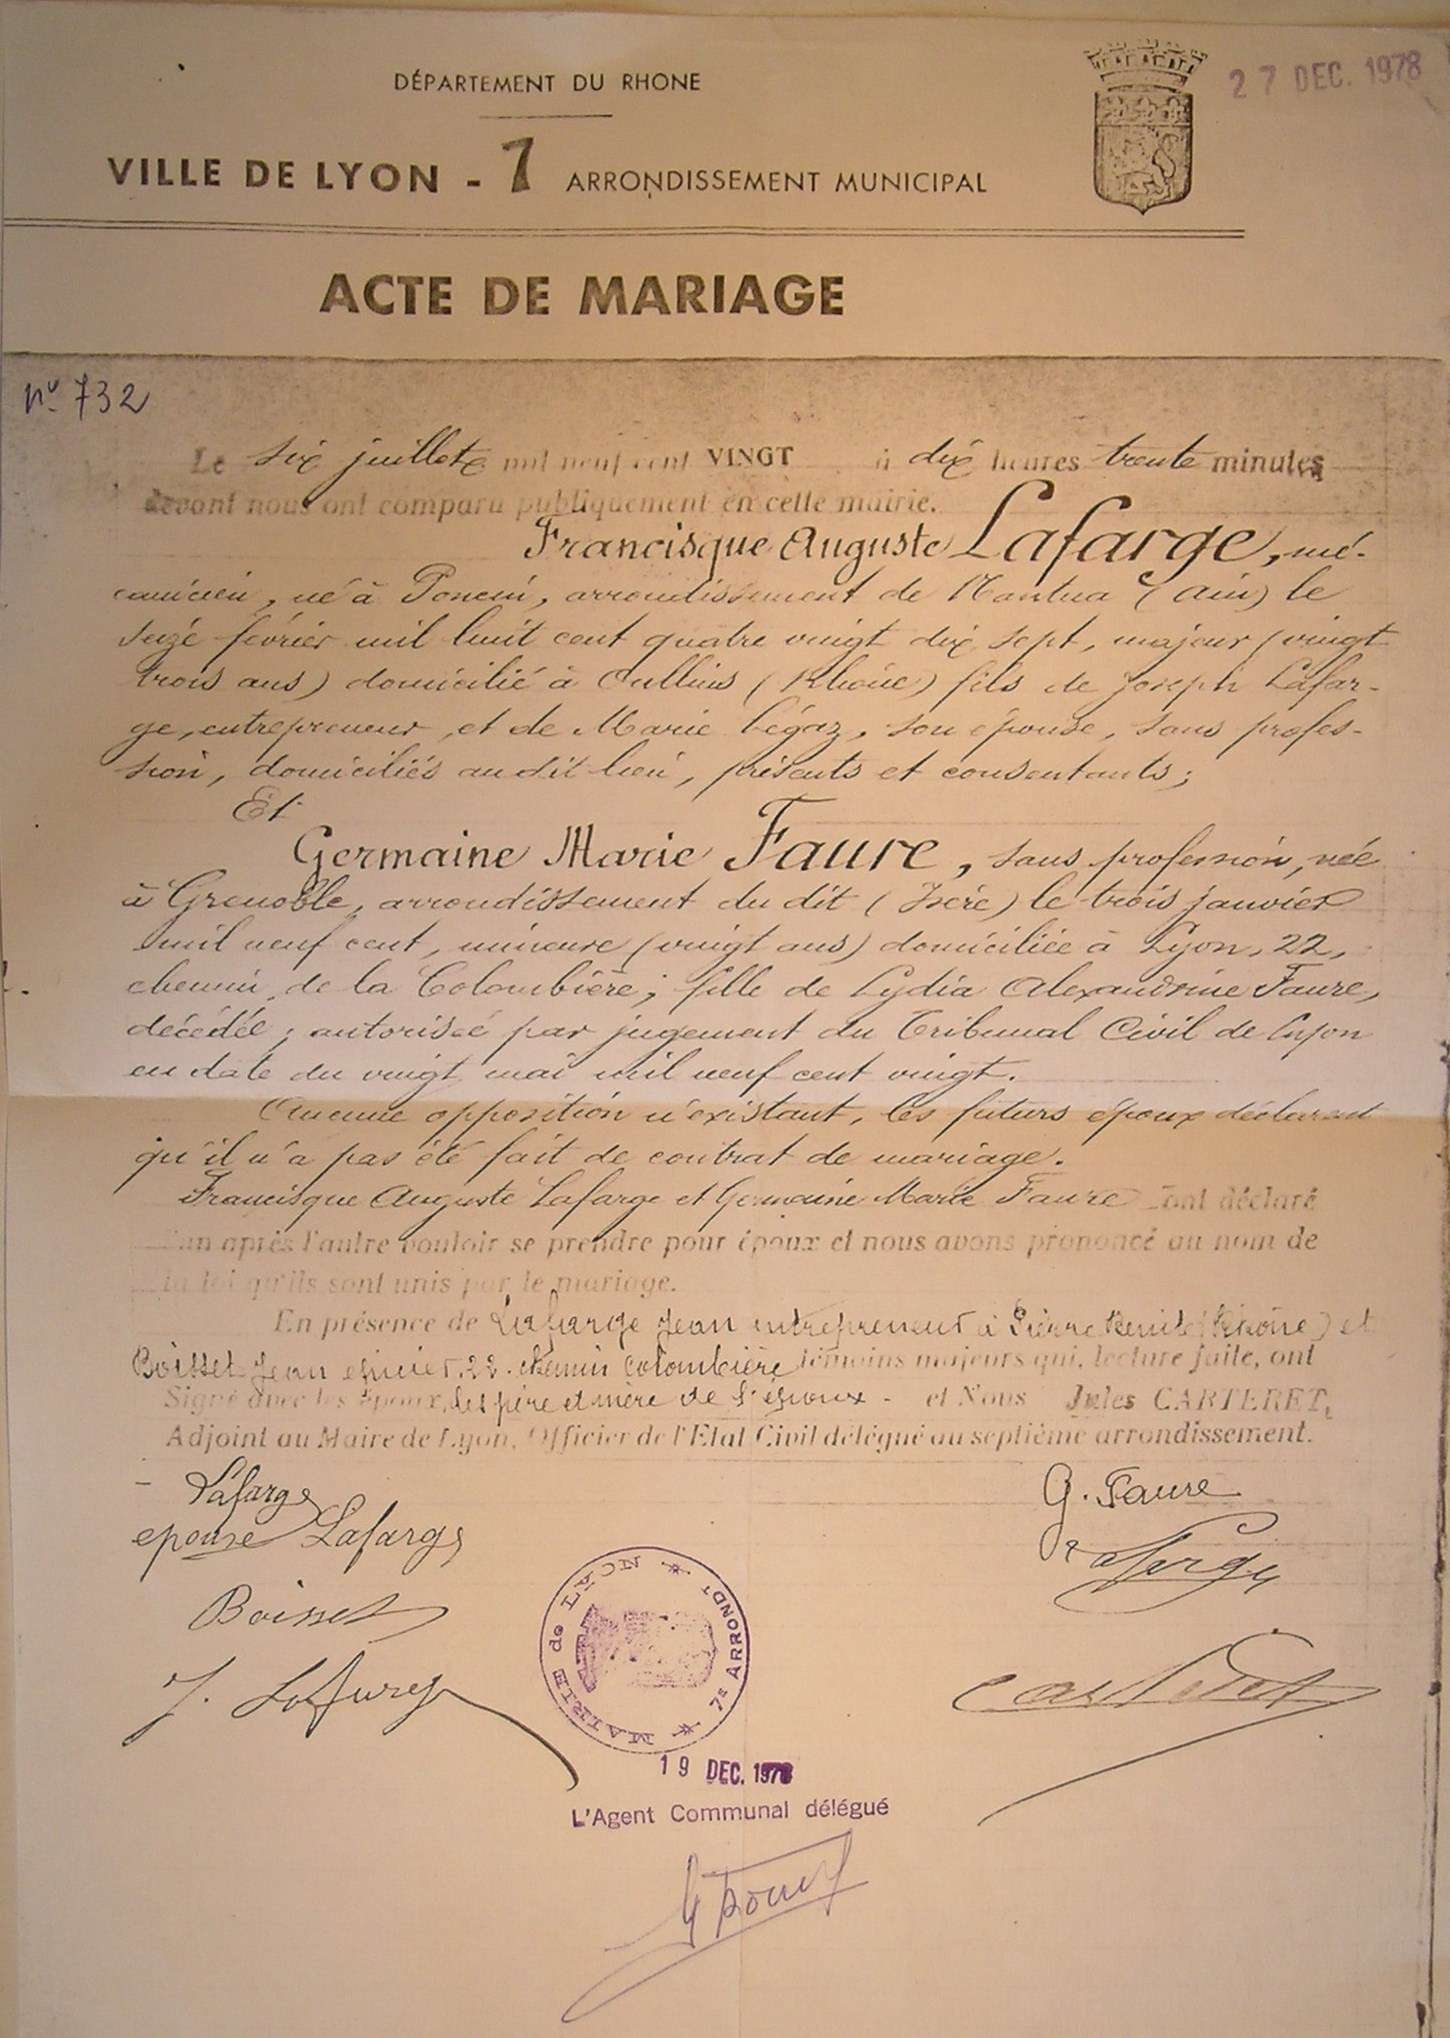 DÉPARTEMENT DU RHONE
27 DEC. 1978
VILLE DE LYON - 7 ARRONDISSEMENT MUNICIPAL
ACTE DE MARIAGE
nº 732
Le six juillet mil neuf cent VINGT à dix heures trente minutes
devant nous ont comparu publiquement en cette mairie.
Francisque Auguste Lafarge, mé-
canicien, né à Poncin, arrondissement de Nantua (Ain) le
seize février mil huit cent quatre vingt dix sept, majeur (vingt
trois ans) domicilié à Oullins (Rhône) fils de Joseph Lafar-
ge, entrepreneur, et de Marie Légaz, son épouse, sans profes-
sion, domiciliés audit lieu, présents et consentants;
Et
Germaine Marie Faure, sans profession, née
à Grenoble, arrondissement du dit (Isère) le trois janvier
mil neuf cent, mineure (vingt ans) domiciliée à Lyon, 22,
chemin de la Colombière; fille de Lydia Alexandrine Faure,
décédée; autorisée par jugement du Tribunal Civil de Lyon
en date du vingt mai mil neuf cent vingt.
Aucune opposition n'existant, les futurs époux déclarent
qu'il n'a pas été fait de contrat de mariage.
Francisque Auguste Lafarge et Germaine Marie Faure ont déclaré
l'un après l'autre vouloir se prendre pour époux et nous avons prononcé au nom de
la loi qu'ils sont unis par le mariage.
En présence de Lafarge Jean entrepreneur à Pierre Bénite (Rhône) et
Boisset Jean épicier, 22 chemin Colombière témoins majeurs qui, lecture faite, ont
Signé avec les Epoux, les père et mère de l'époux - et Nous Jules CARTERET,
Adjoint au Maire de Lyon, Officier de l'Etat Civil délégué au septième arrondissement.
Lafarge
G. Faure
epouse Lafarge
Lafarge
Boisset
J. Lafarge
Carteret
MAIRIE de LYON 7e ARRONDT
19 DEC. 1978
L'Agent Communal délégué